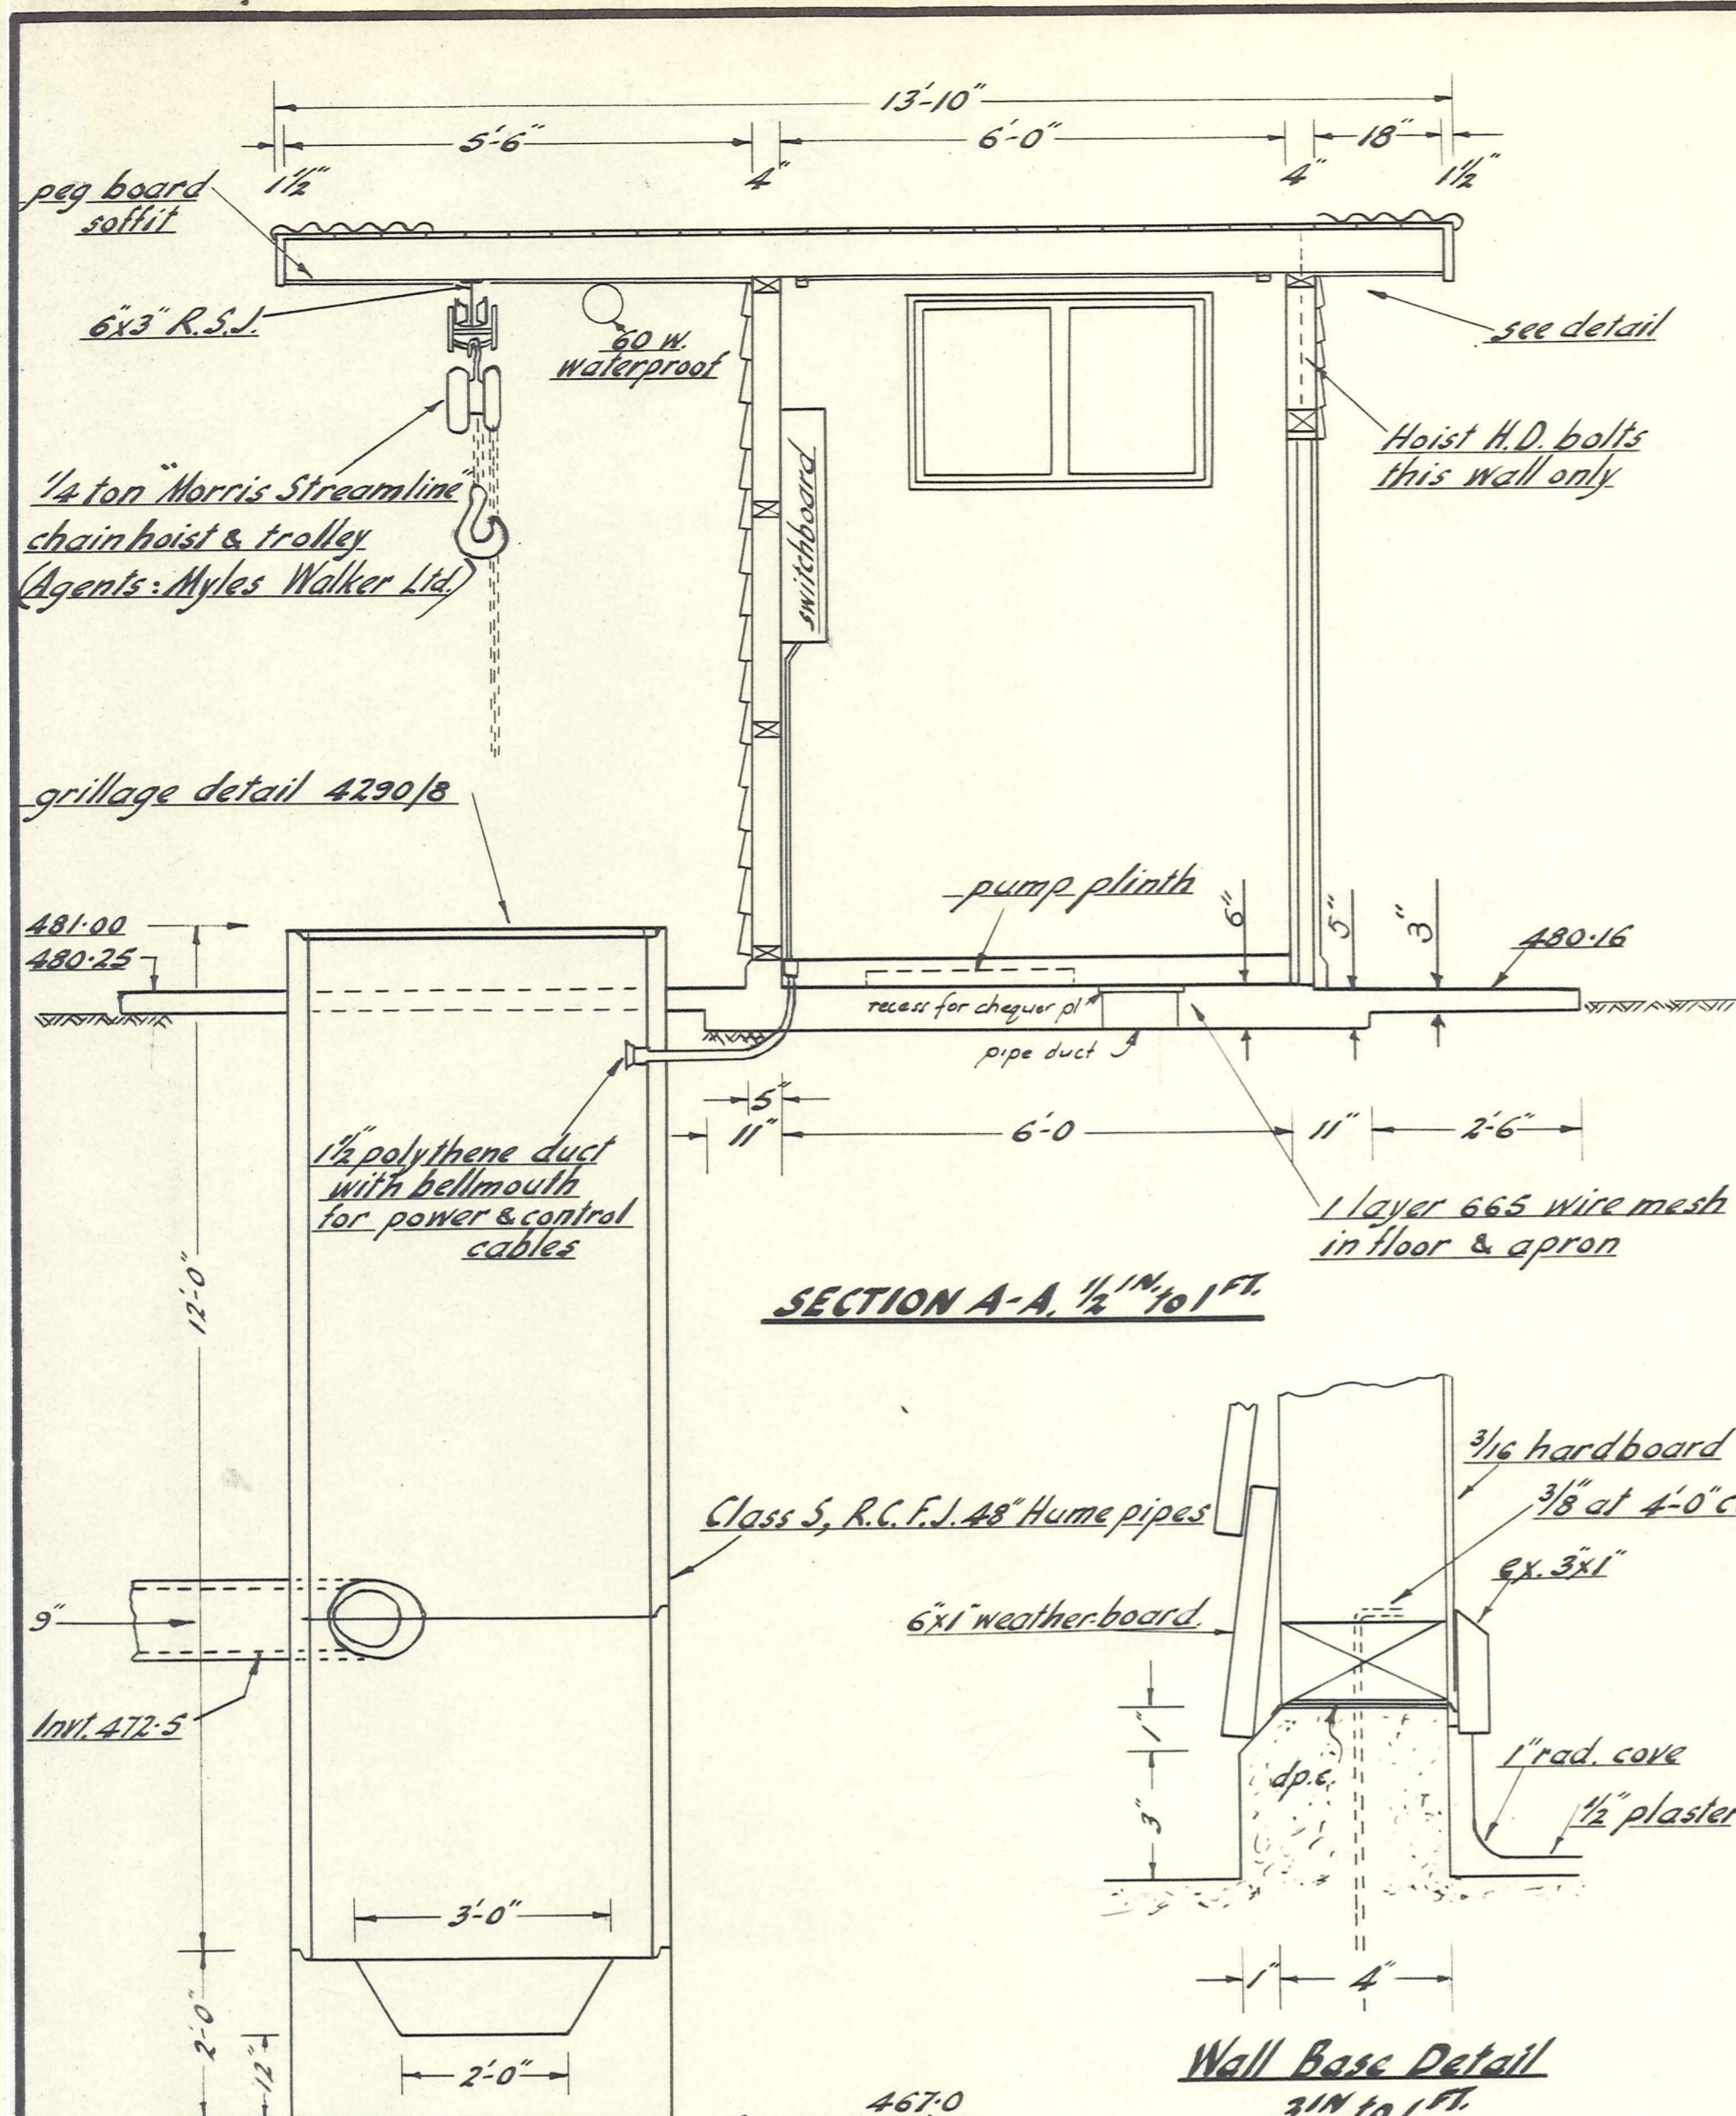 13'-10"
5'-6"
6'-0"
18"
1½"
4"
4"
1½"
peg board
soffit
6"x3" R.S.J.
60 w.
waterproof
see detail
Hoist H.D. bolts
this wall only
1/4 ton "Morris Streamline"
chain hoist & trolley
(Agents: Myles Walker Ltd.)
switchboard
grillage detail 4290/8
pump plinth
481·00
480·25
6"
5"
3"
480·16
recess for chequer pl
pipe duct
5"
11"
6'-0
11"
2'-6"
1½" polythene duct
with bellmouth
for power & control
cables
1 layer 665 wire mesh
in floor & apron
SECTION A-A. ½ IN. to 1 FT.
12'-0"
3/16 hardboard
3/8" at 4'-0" c
Class S, R.C.F.J. 48" Hume pipes
ex. 3"x1"
9"
6"x1" weatherboard
Invt. 472·5
1"
d.p.c.
1" rad. cove
½" plaster
3"
3'-0"
1"
4"
2'-0"
12"
2'-0"
Wall Base Detail
3 IN to 1 FT.
467·0